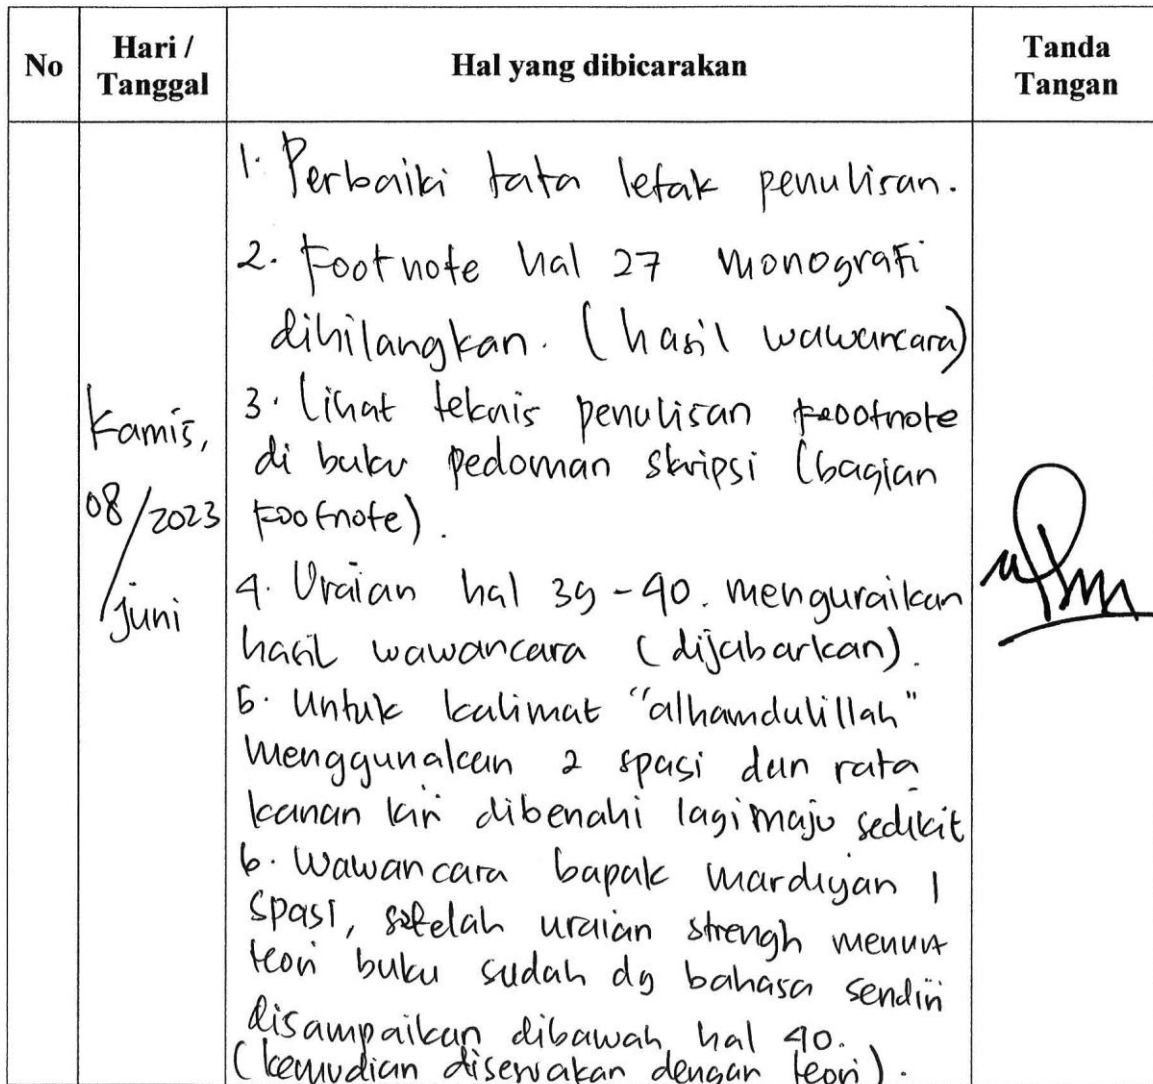 No
Hari /
Tanggal
Hal yang dibicarakan
Tanda
Tangan
Kamis,
08/2023
/juni
1. Perbaiki tata letak penulisan.
2. Footnote hal 27 monografi
dihilangkan. (hasil wawancara)
3. Lihat teknis penulisan footnote
di buku pedoman skripsi (bagian
footnote).
4. Uraian hal 39-40. menguraikan
hasil wawancara (dijabarkan).
5. Untuk kalimat "alhamdulillah"
menggunakan 2 spasi dan rata
kanan kiri dibenahi lagi maju sedikit
6. Wawancara bapak mardiyan 1
spasi, setelah uraian strengh menurut
teori buku sudah dg bahasa sendiri
disampaikan dibawah hal 40.
(kemudian disesuakan dengan teori).